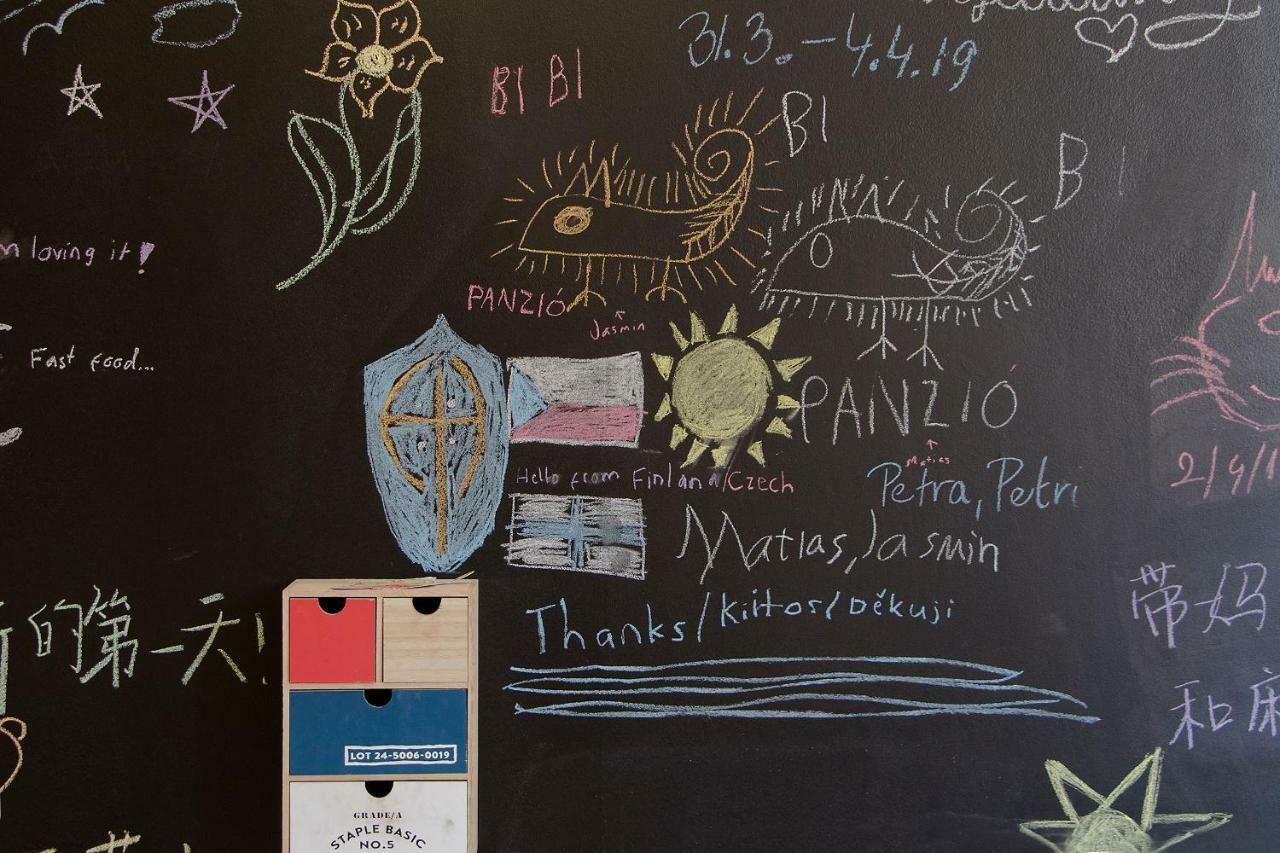 31.3.-4.4.19
BI BI
BI
BI
m loving it!
PANZIÓ
Jasmin
Fast food...
PANZIÓ
Matias
Petra, Petri
Hello from Finland/Czech
2/4/1
Matias, Jasmin
Thanks/Kiitos/Děkuji
的第一天!
带妈
和
LOT 24-5006-0019
GRADE/A
STAPLE BASIC
NO.5